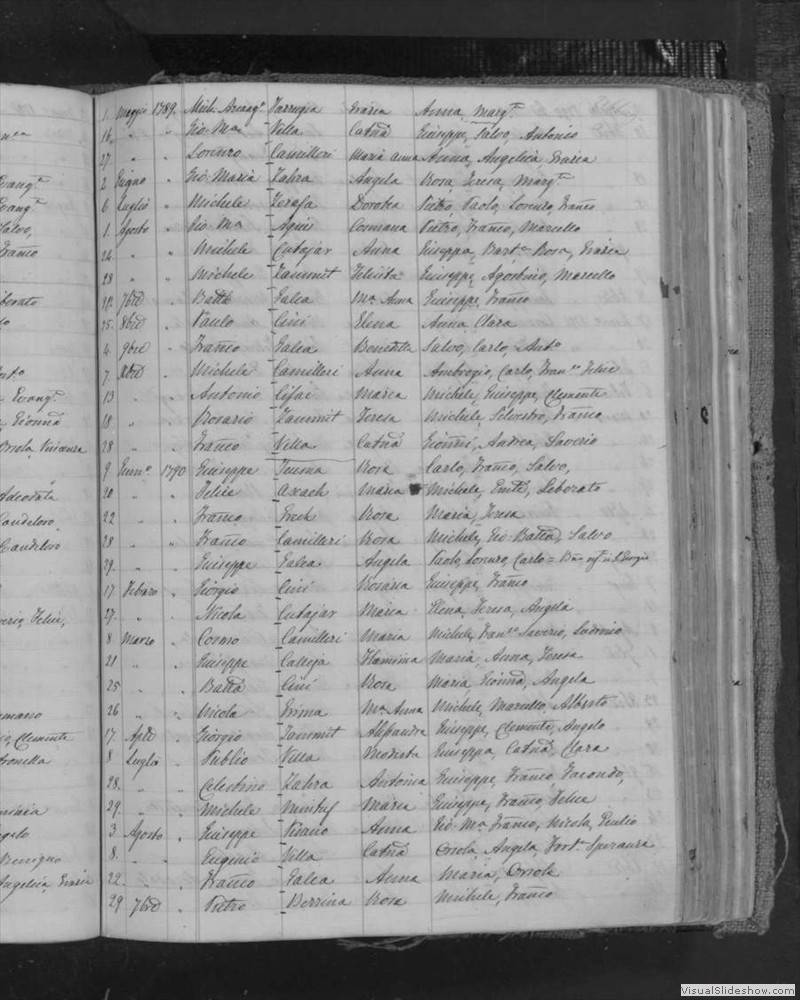 n.ca
Evang.a
Evang.a
Salvo,
Franco
iberato
to
nto
Evang.a
Gionna
Orsola Vincenza
Adeodata
Candeloro
Candeloro
verio, Felice,
omano
io, Clemente
tronella
minica
ngelo
Benigno
Angelica, Grazia
1 Maggio 1789. Mich. Arcang.o Farrugia Grazia Anna Marg.ta
16 " " Gio Ma Villa Catna Giuseppe, Salvo, Antonio
27 " " Lorenzo Camilleri Maria Anna Anna, Angelica Grazia
2 Giugno " Gio Maria Zahra Angela Rosa, Teresa, Marg.ta
6 Luglio " Michele Zerafa Dorotea Pietro, Paolo, Lorenzo, Franco
1 Agosto " Gio Ma Agius Cosmana Pietro, Franco, Marcello
24 " " Michele Cutajar Anna Giuseppa, Rosa, Grazia
28 " " Michele Zammit Felicita Giuseppe, Agostino, Marcello
7bre " Batta Galea Ma Anna Giuseppe, Franco
25 8bre " Paulo Cini Elena Anna Clara
4 9bre " Franco Galea Benedetta Salvo, Carlo, Anto
7 Xbre " Michele Camilleri Anna Ambrogio, Carlo, Fran.co Felice
13 " " Antonio Cifai Maria Michele, Giuseppe, Clemente
18 " " Rosario Zammit Teresa Michele, Silvestro, Franco
28 " " Franco Villa Catna Gionni, Andrea, Saverio
9 Genn.o 1790 Giuseppe Teuma Rosa Carlo, Franco, Salvo,
20 " " Felice Axiach Maria Michele, Liberato
22 " " Franco Grech Rosa Maria, Teresa
28 " " Franco Camilleri Rosa Michele, Gio Batta, Salvo
29 " " Giuseppe Galea Angela Paolo, Lorenzo, Carlo =
17 Febraro " Giorgio Cini Rosaria Giuseppe, Franco
27 " " Nicola Cutajar Maria Elena, Teresa, Angela
8 Marzo " Cosmo Camilleri Maria Michele, Fran.co Saverio, Ludovico
21 " " Giuseppe Calleja Flaminia Maria, Anna, Teresa
25 " " Batta Cini Rosa Maria, Gionna, Angela
26 " " Nicola Grima Ma Anna Michele, Marcello, Alberto
17 Aple " Giorgio Zammit Giuseppe, Clemente, Angelo
8 Luglio " Publio Villa Modesta Giuseppa, Catna, Clara
28 " " Celestino Zahra Antonia Giuseppe, Franco, Facondo,
29 " " Michele Mintuf Maria Giuseppe, Franco, Felice
3 Agosto " Giuseppe Pisano Anna Gio Ma Franco, Nicola, Publio
8 " " Eugenio Villa Catna Orsola, Angela, Fort.a Speranza
22 " " Franco Galea Anna Maria, Orsola
29 7bre " Pietro Berrina Rosa Michele, Franco
VisualSlideshow.com